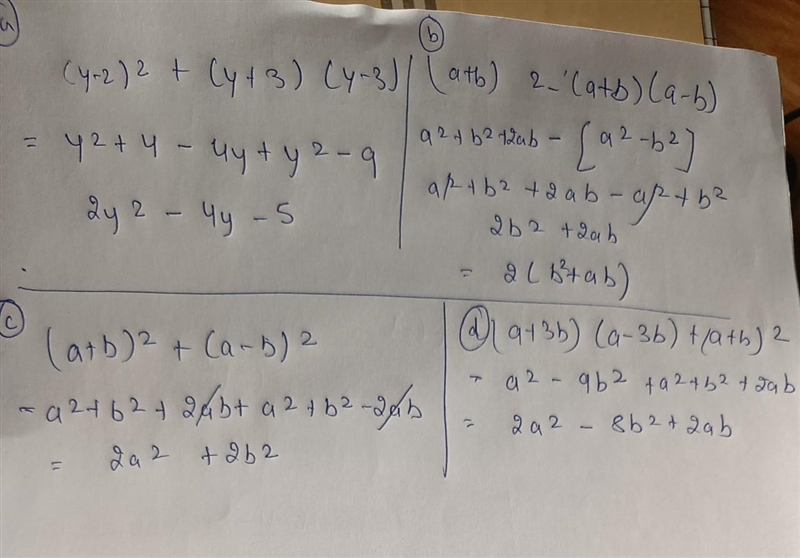 a
(y-2)2 + (y+3) (y-3)
= y2 + 4 - 4y + y2 - 9
2y2 - 4y - 5
b
(a+b) 2 - (a+b)(a-b)
a2 + b2 + 2ab - [a2 - b2]
a2 + b2 + 2ab - a2 + b2
2b2 + 2ab
= 2(b2+ab)
c
(a+b)2 + (a-b)2
= a2 + b2 + 2ab + a2 + b2 - 2ab
= 2a2 + 2b2
d (a+3b) (a-3b) + (a+b)2
= a2 - 9b2 + a2 + b2 + 2ab
= 2a2 - 8b2 + 2ab